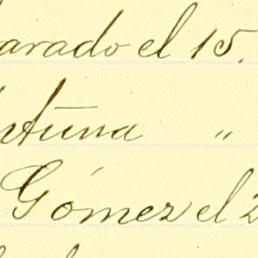 arado el 15.
rtuna "
Gómez el 2